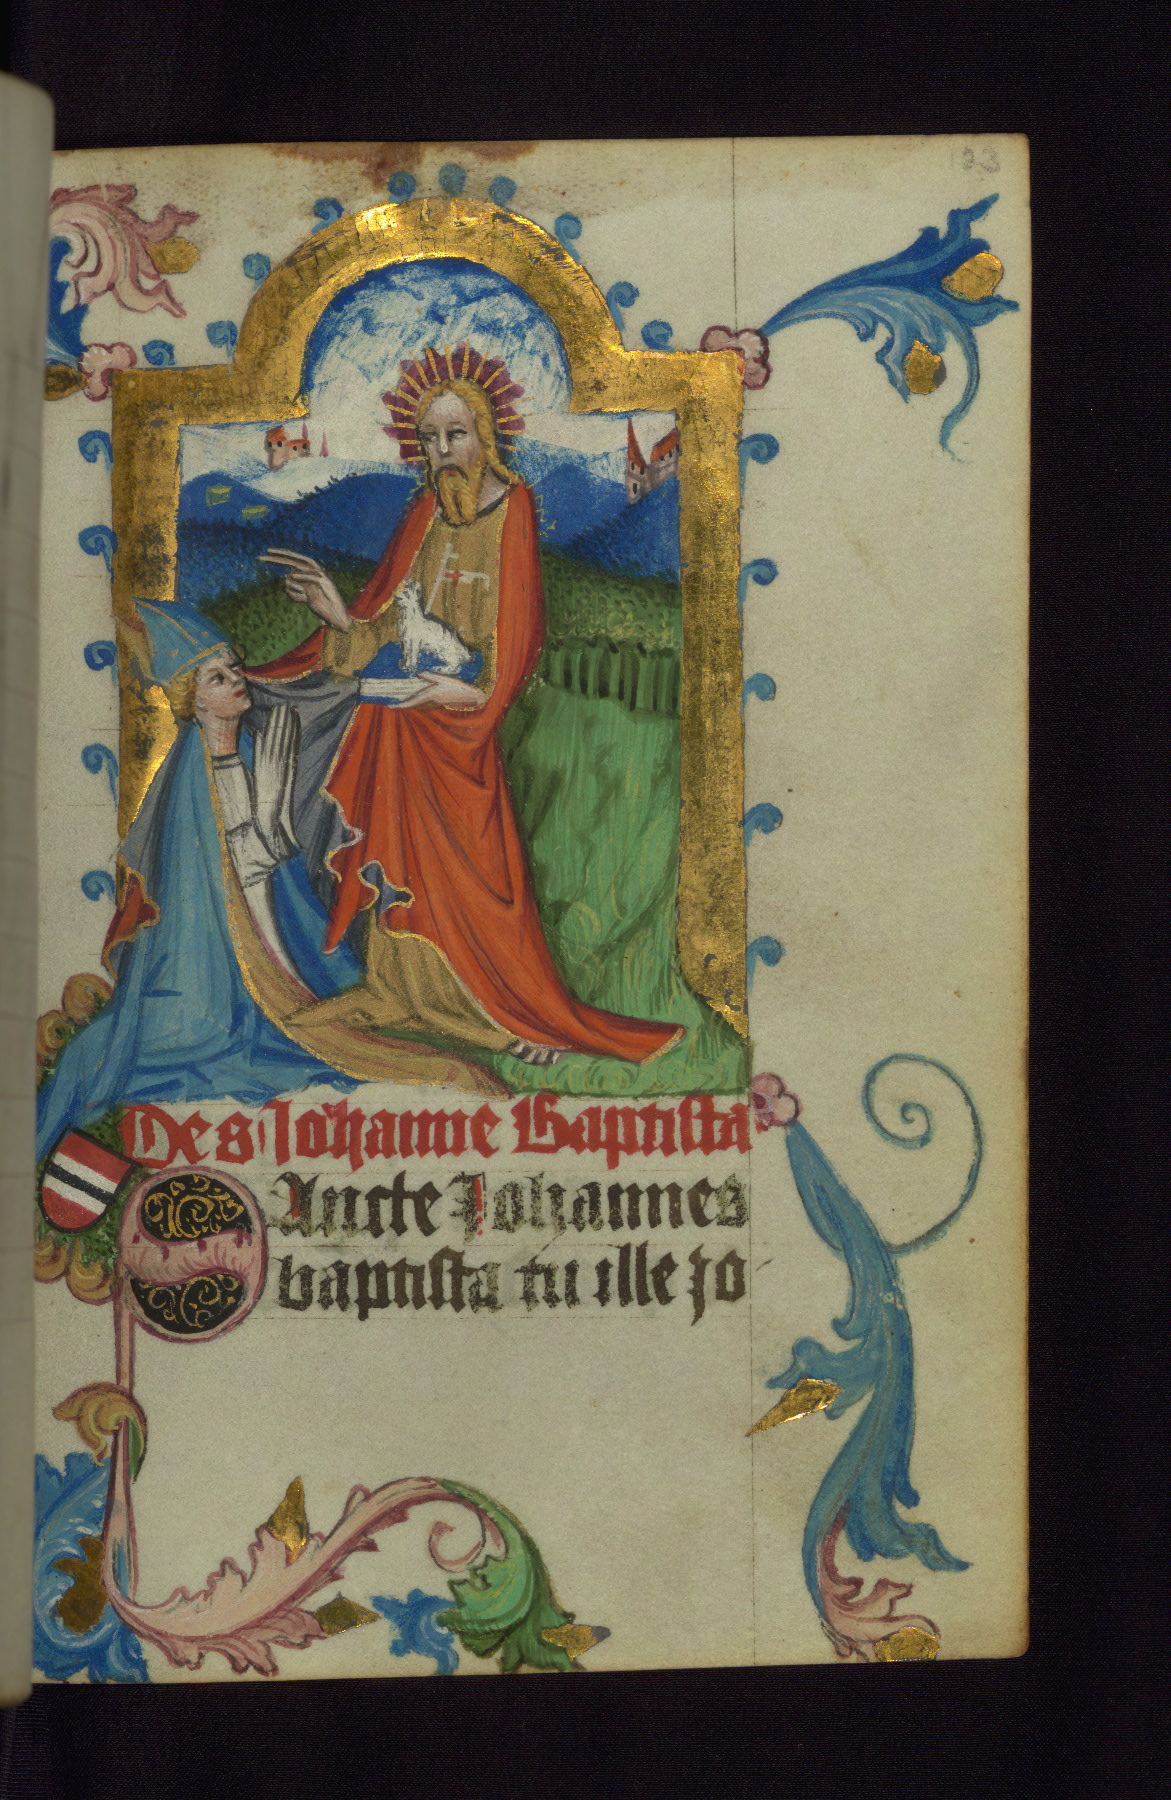 123
Des Johanne Baptista
SAncte Johannes
baptista tu ille jo